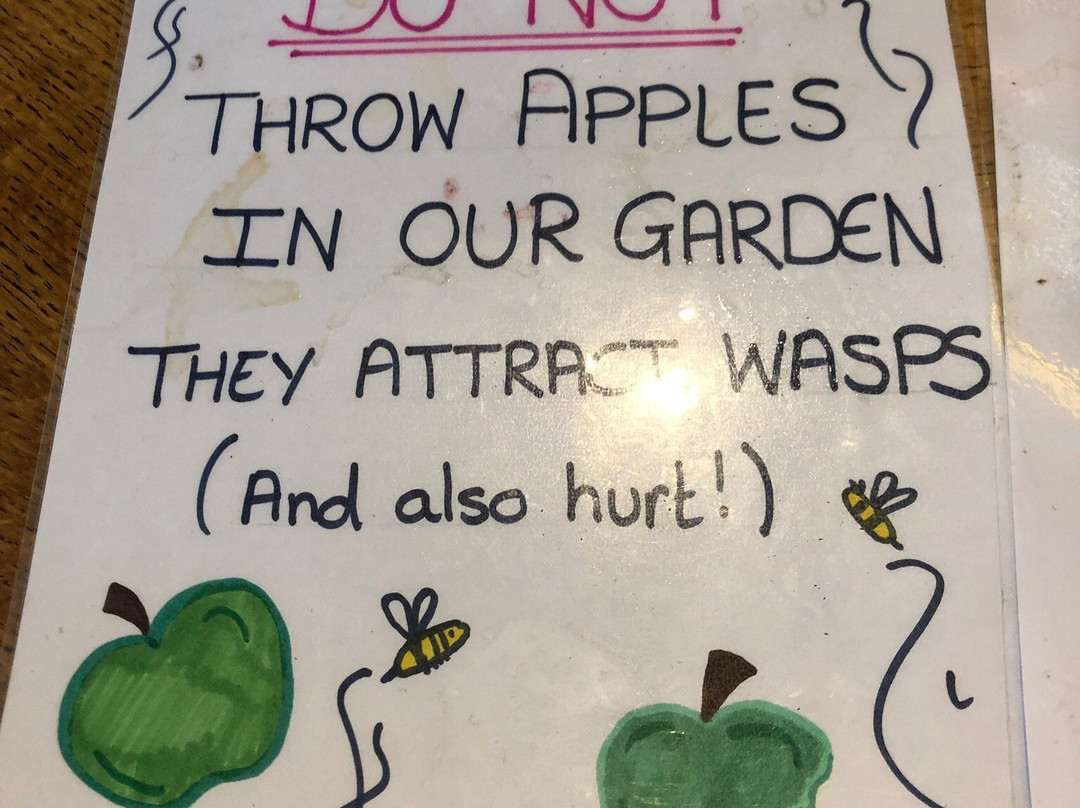 DO NOT
THROW APPLES
IN OUR GARDEN
THEY ATTRACT WASPS
(And also hurt!)